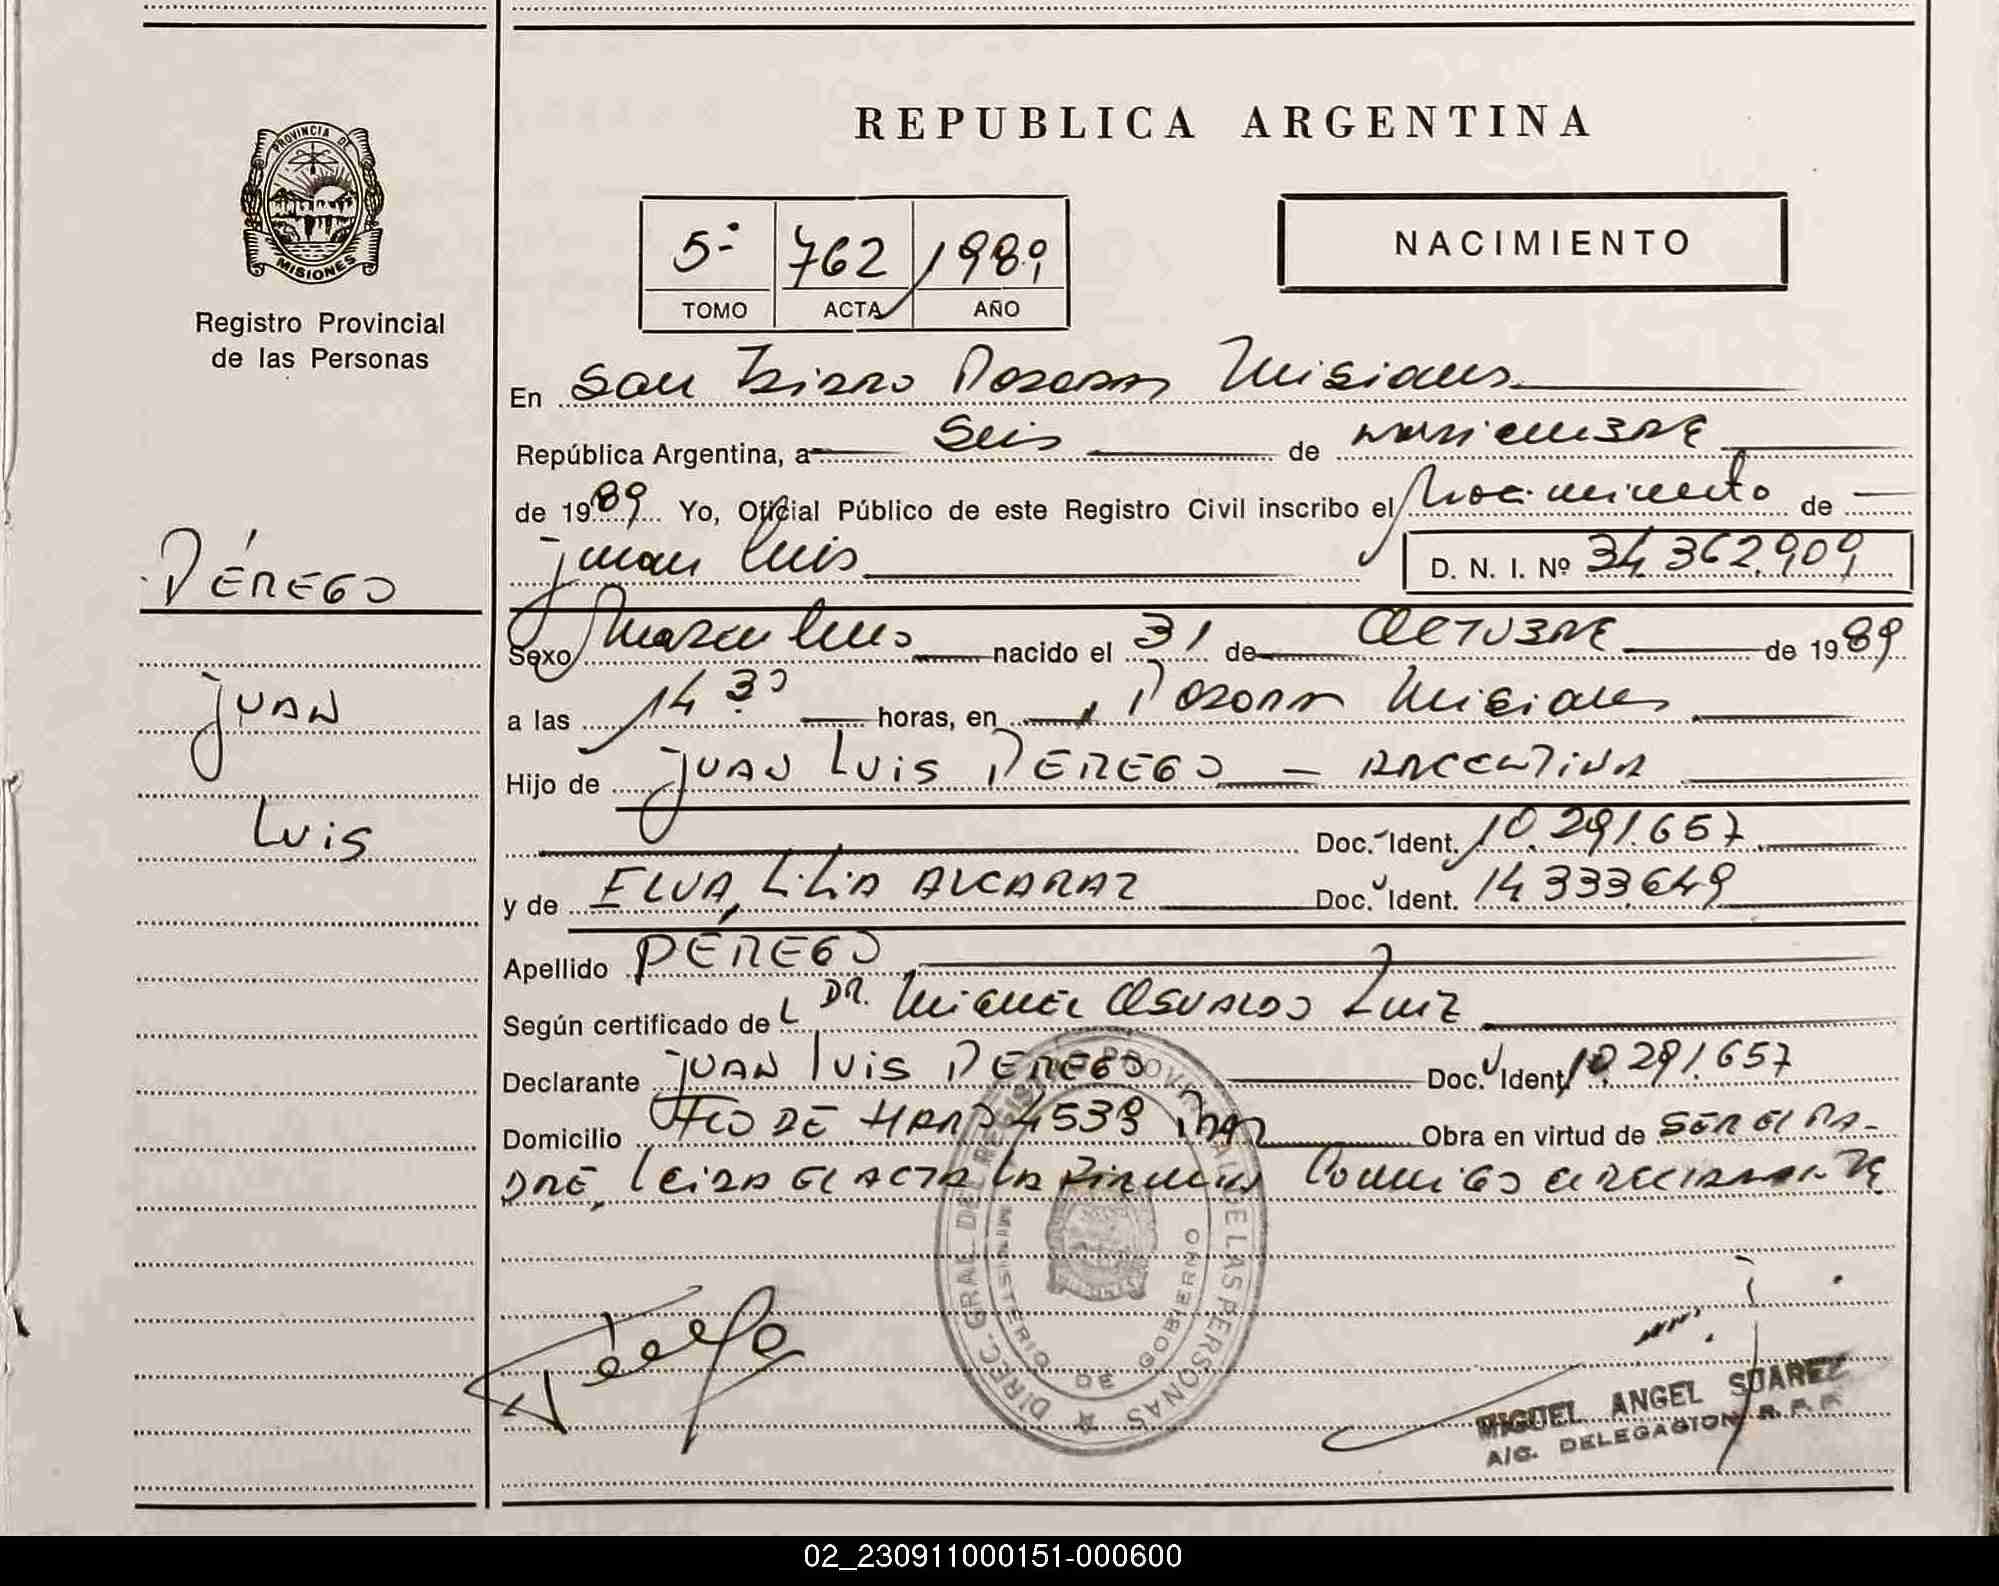 REPUBLICA ARGENTINA
PROVINCIA DE
MISIONES
Registro Provincial
de las Personas
5- 762 1989
TOMO ACTA AÑO
NACIMIENTO
En San Isidro Posadas Misiones
República Argentina, a Seis de noviembre
de 1989 Yo, Oficial Público de este Registro Civil inscribo el Nacimiento de
Juan Luis D. N. I. Nº 34.362.909
PÉREGO
Juan
Luis
Sexo Masculino nacido el 31 de OCTUBRE de 1989
a las 14 30 horas, en Posadas Misiones
Hijo de JUAN LUIS PEREGO - ARGENTINA
Doc. Ident. 10.291.657
y de ELVA, LiLiA ALCARAZ Doc. Ident. 14.333.649
Apellido PÉREGO
Según certificado de DR. MIGUEL OSVALDO
Declarante JUAN LUIS PEREGO Doc. Ident. 10.291.657
Domicilio FCO DE HARO 4539 Obra en virtud de SER EL PA-
DRE, Leida El ACTA LA FIRMA Conmigo el declarante
DIREC. GRAL. DEL REGISTRO PROVINCIAL DE LAS PERSONAS
MINISTERIO DE GOBIERNO
MIGUEL ANGEL SUAREZ
A/C. DELEGACION R. P. P.
02_230911000151-000600